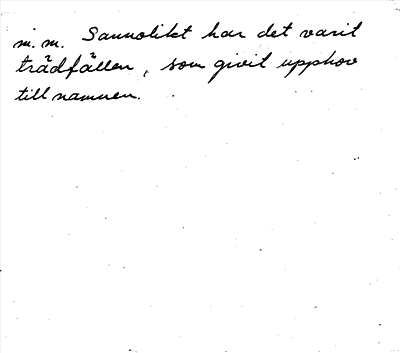 m.m. Sannolikt har det varit
trädfällen, som givit upphov
till namnen.